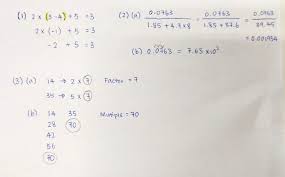 (1) 2 x (3-4) + 5 = 3
2 x (-1) + 5 = 3
-2 + 5 = 3
(2) (a) 0.0763 / 1.85 + 4.7 x 8 = 0.0763 / 1.85 + 37.6 = 0.0763 / 39.45
= 0.001934
(b) 0.0763 = 7.63 x 10
(3) (a) 14 → 2 x 7 Factor = 7
35 → 5 x 7
(b) 14 35 Multiple = 70
28 70
42
56
70